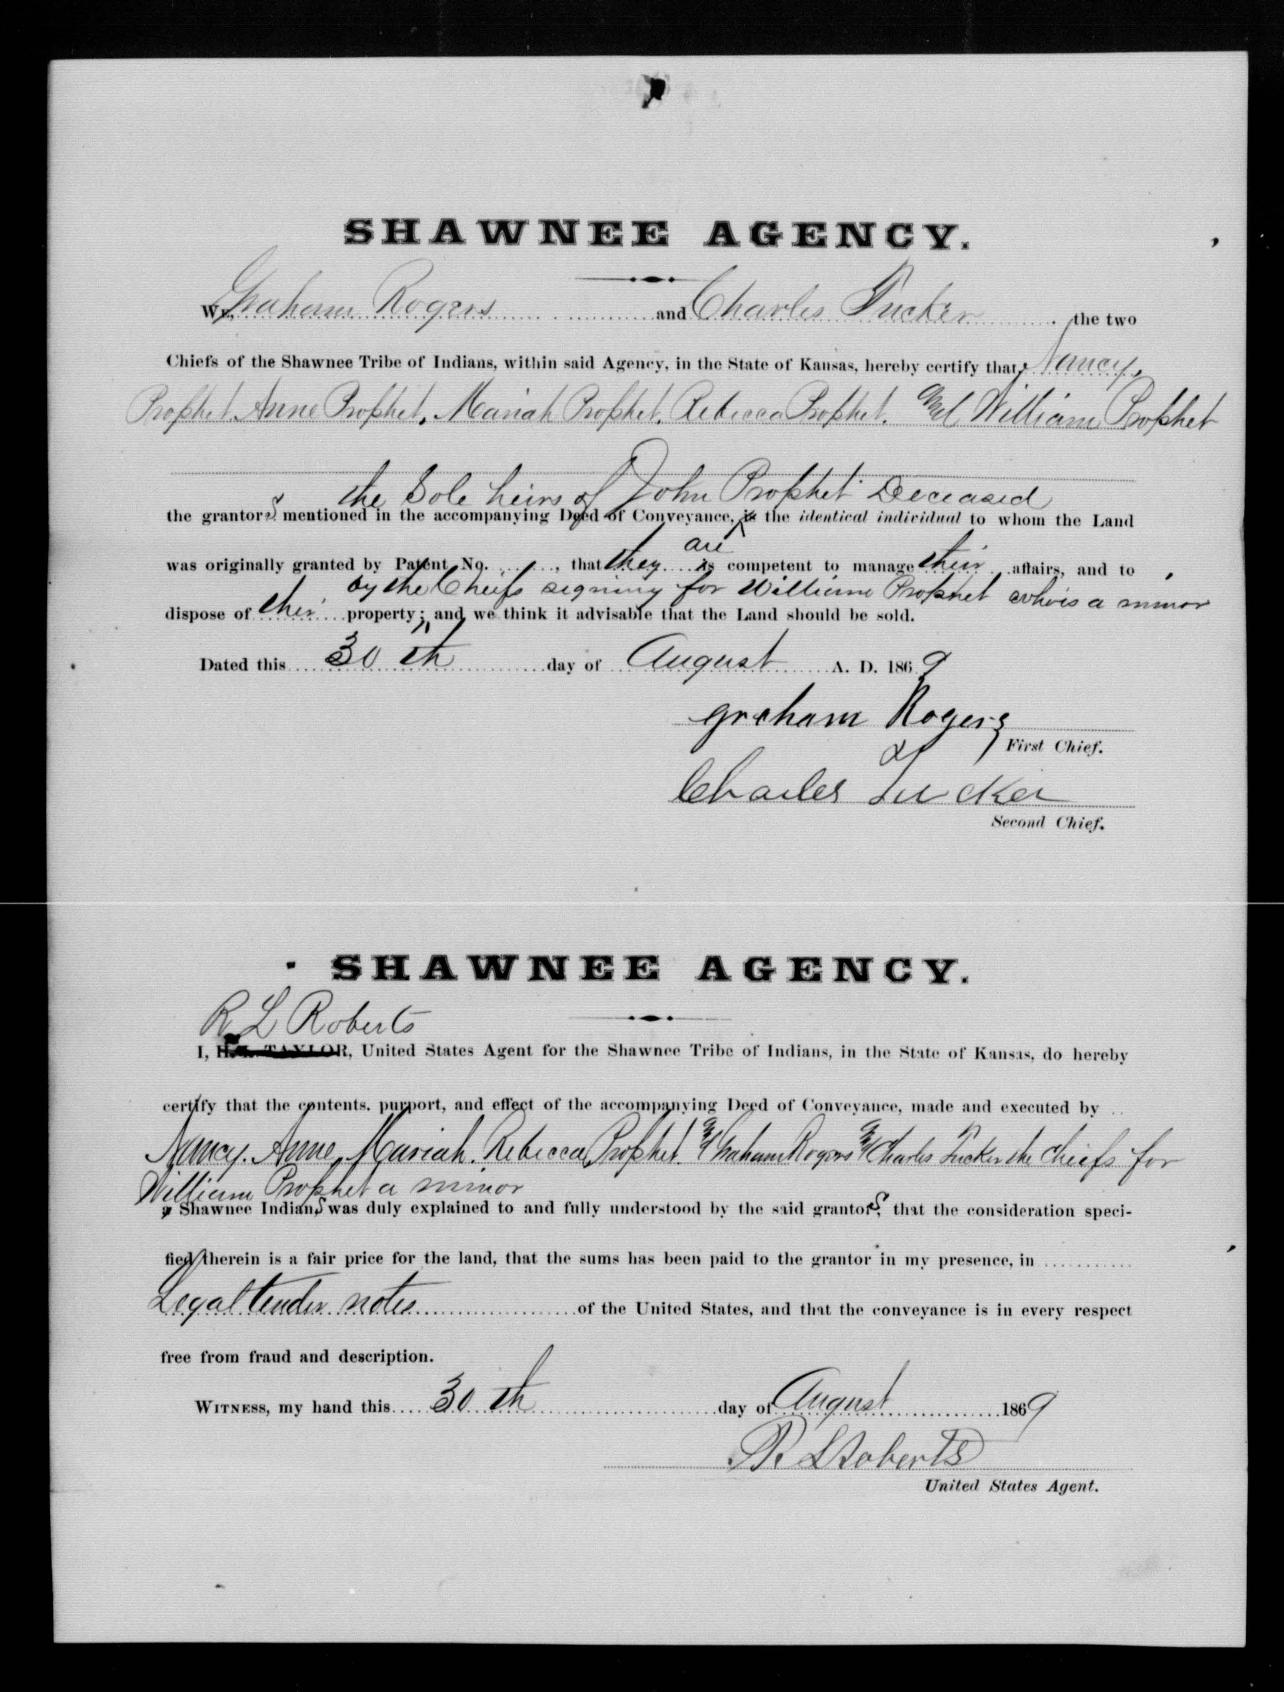 SHAWNEE AGENCY.
We, Graham Rogers and Charles Tucker the two
Chiefs of the Shawnee Tribe of Indians, within said Agency, in the State of Kansas, hereby certify that, Nancy,
Prophet, Anne Prophet, Mariah Prophet, Rebecca Prophet, and William Prophet
the Sole heirs of John Prophet Deceased
the grantors mentioned in the accompanying Deed of Conveyance, is the identical individual to whom the Land
are
was originally granted by Patent No. ......, that they is competent to manage their affairs, and to
by the Cheifs signing for William Prophet who is a minor
dispose of their property; and we think it advisable that the Land should be sold.
Dated this 30th day of August A. D. 1869
graham Rogers
First Chief.
Charles Tucker
Second Chief.
SHAWNEE AGENCY.
R L Roberts
I, H. L. TAYLOR, United States Agent for the Shawnee Tribe of Indians, in the State of Kansas, do hereby
certify that the contents, purport, and effect of the accompanying Deed of Conveyance, made and executed by
Nancy, Anne, Mariah, Rebecca, Prophet, and Graham Rogers and Charles Tucker the Chiefs for
William Prophet a minor
a Shawnee Indians was duly explained to and fully understood by the said grantors, that the consideration speci-
fied therein is a fair price for the land, that the sums has been paid to the grantor in my presence, in
Legal tender notes of the United States, and that the conveyance is in every respect
free from fraud and description.
WITNESS, my hand this 30th day of August 1869
R L Roberts
United States Agent.